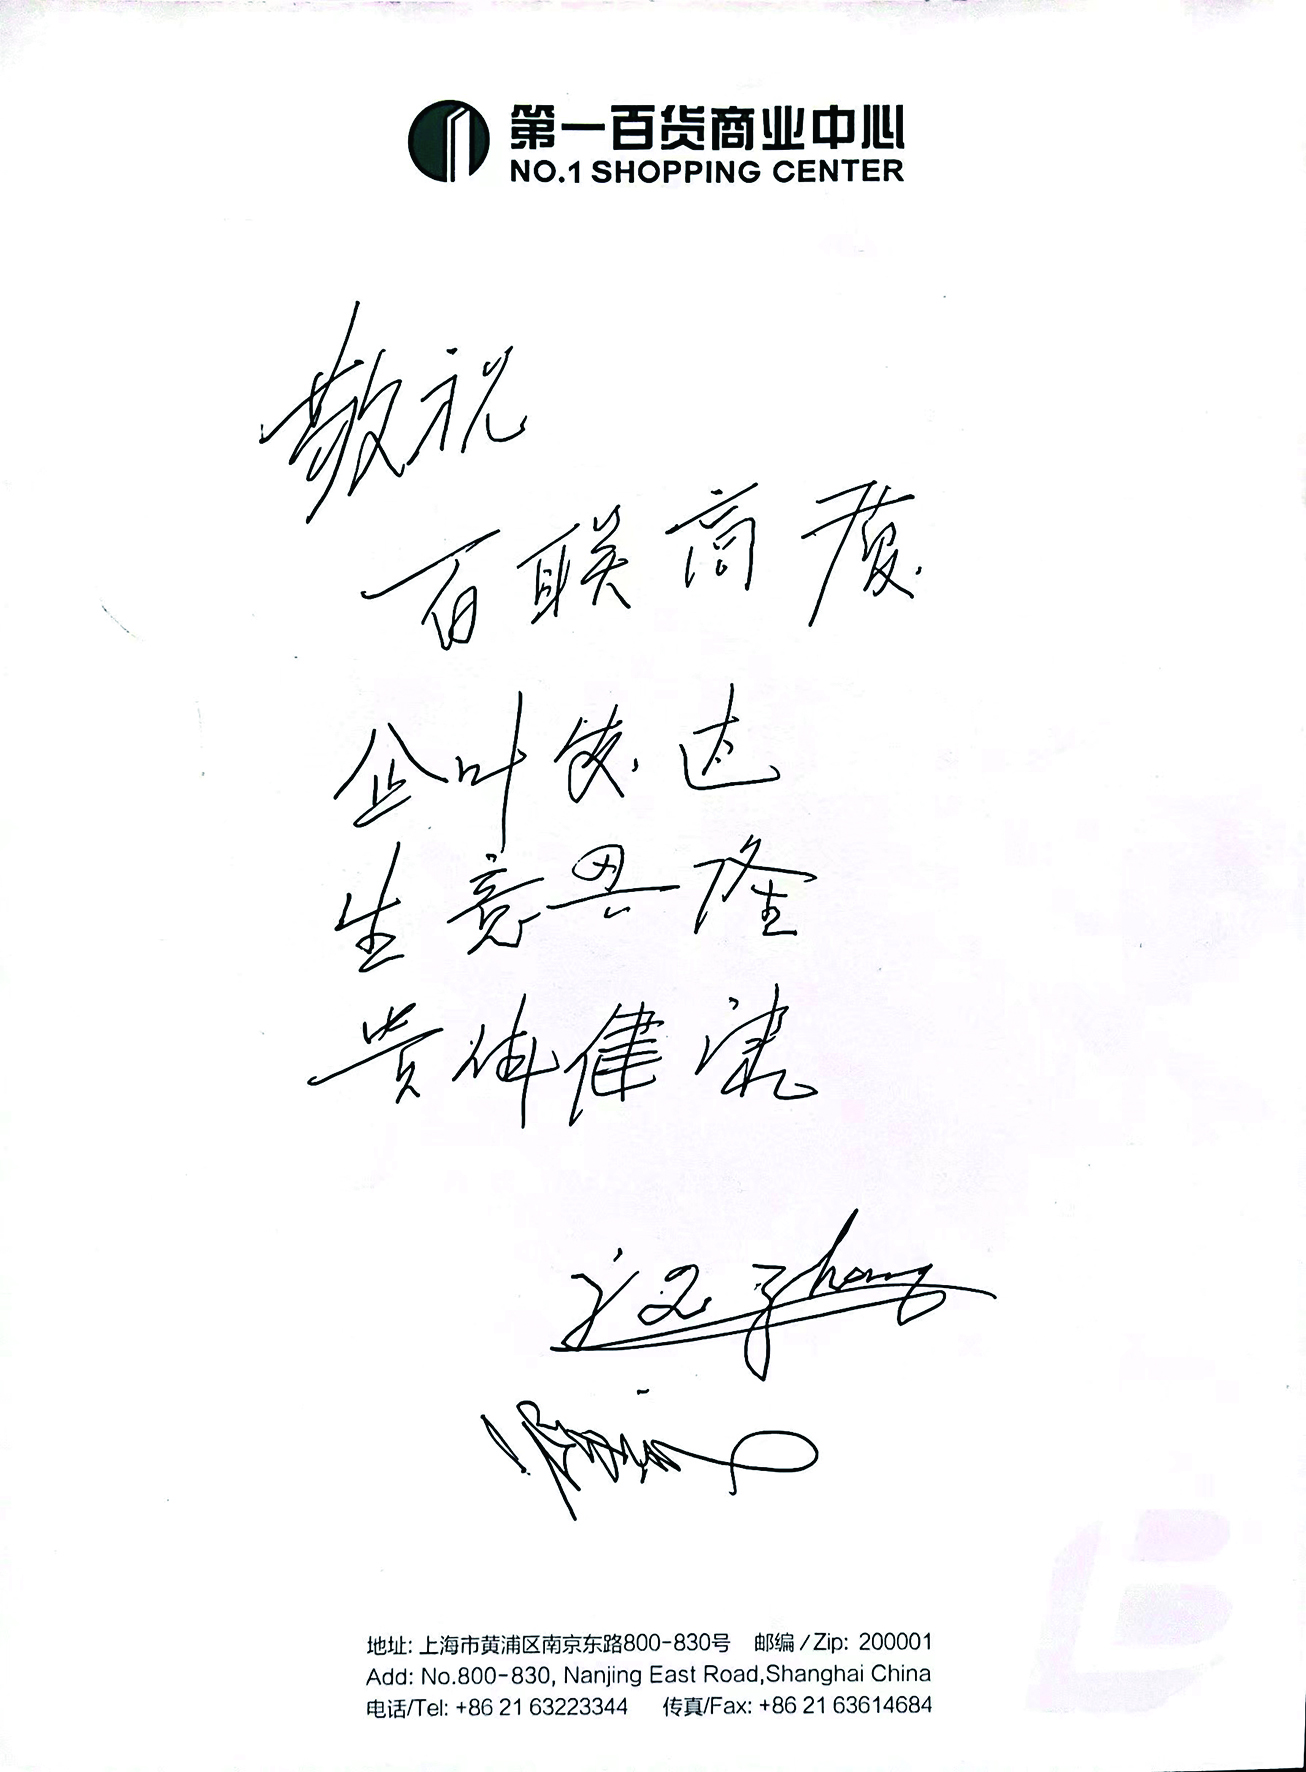 第一百货商业中心
NO.1 SHOPPING CENTER
敬祝
百联商厦
企叶发达
生意兴隆
贵体健康
地址: 上海市黄浦区南京东路800-830号 邮编/Zip: 200001
Add: No.800-830, Nanjing East Road,Shanghai China
电话/Tel: +86 21 63223344 传真/Fax: +86 21 63614684